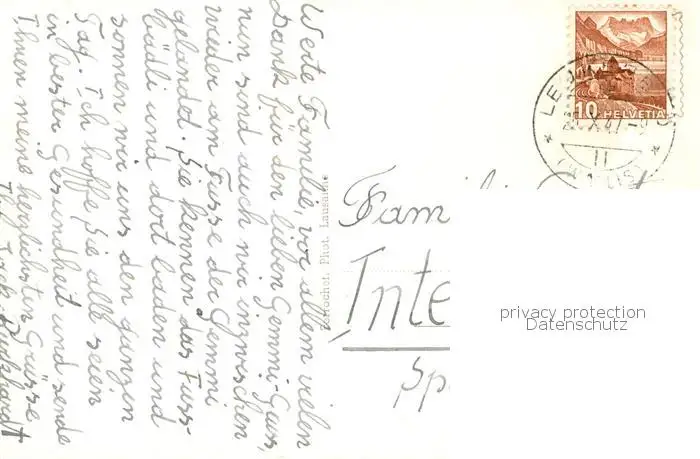 Werte Familie, vor allem vielen
Dank für den lieben Gemmi-Gruss,
nun sind auch wir inzwischen
wieder am Fusse der Gemmi
gelandet. Sie kennen das Fuss-
bädli und dort baden und
sonnen wir uns den ganzen
Tag. Ich hoffe Sie alle seien
in bester Gesundheit und sende
Ihnen meine herzlichsten Grüsse
Phot. Lausanne
Fam
Inte
Sp
10 HELVETIA
privacy protection
Datenschutz